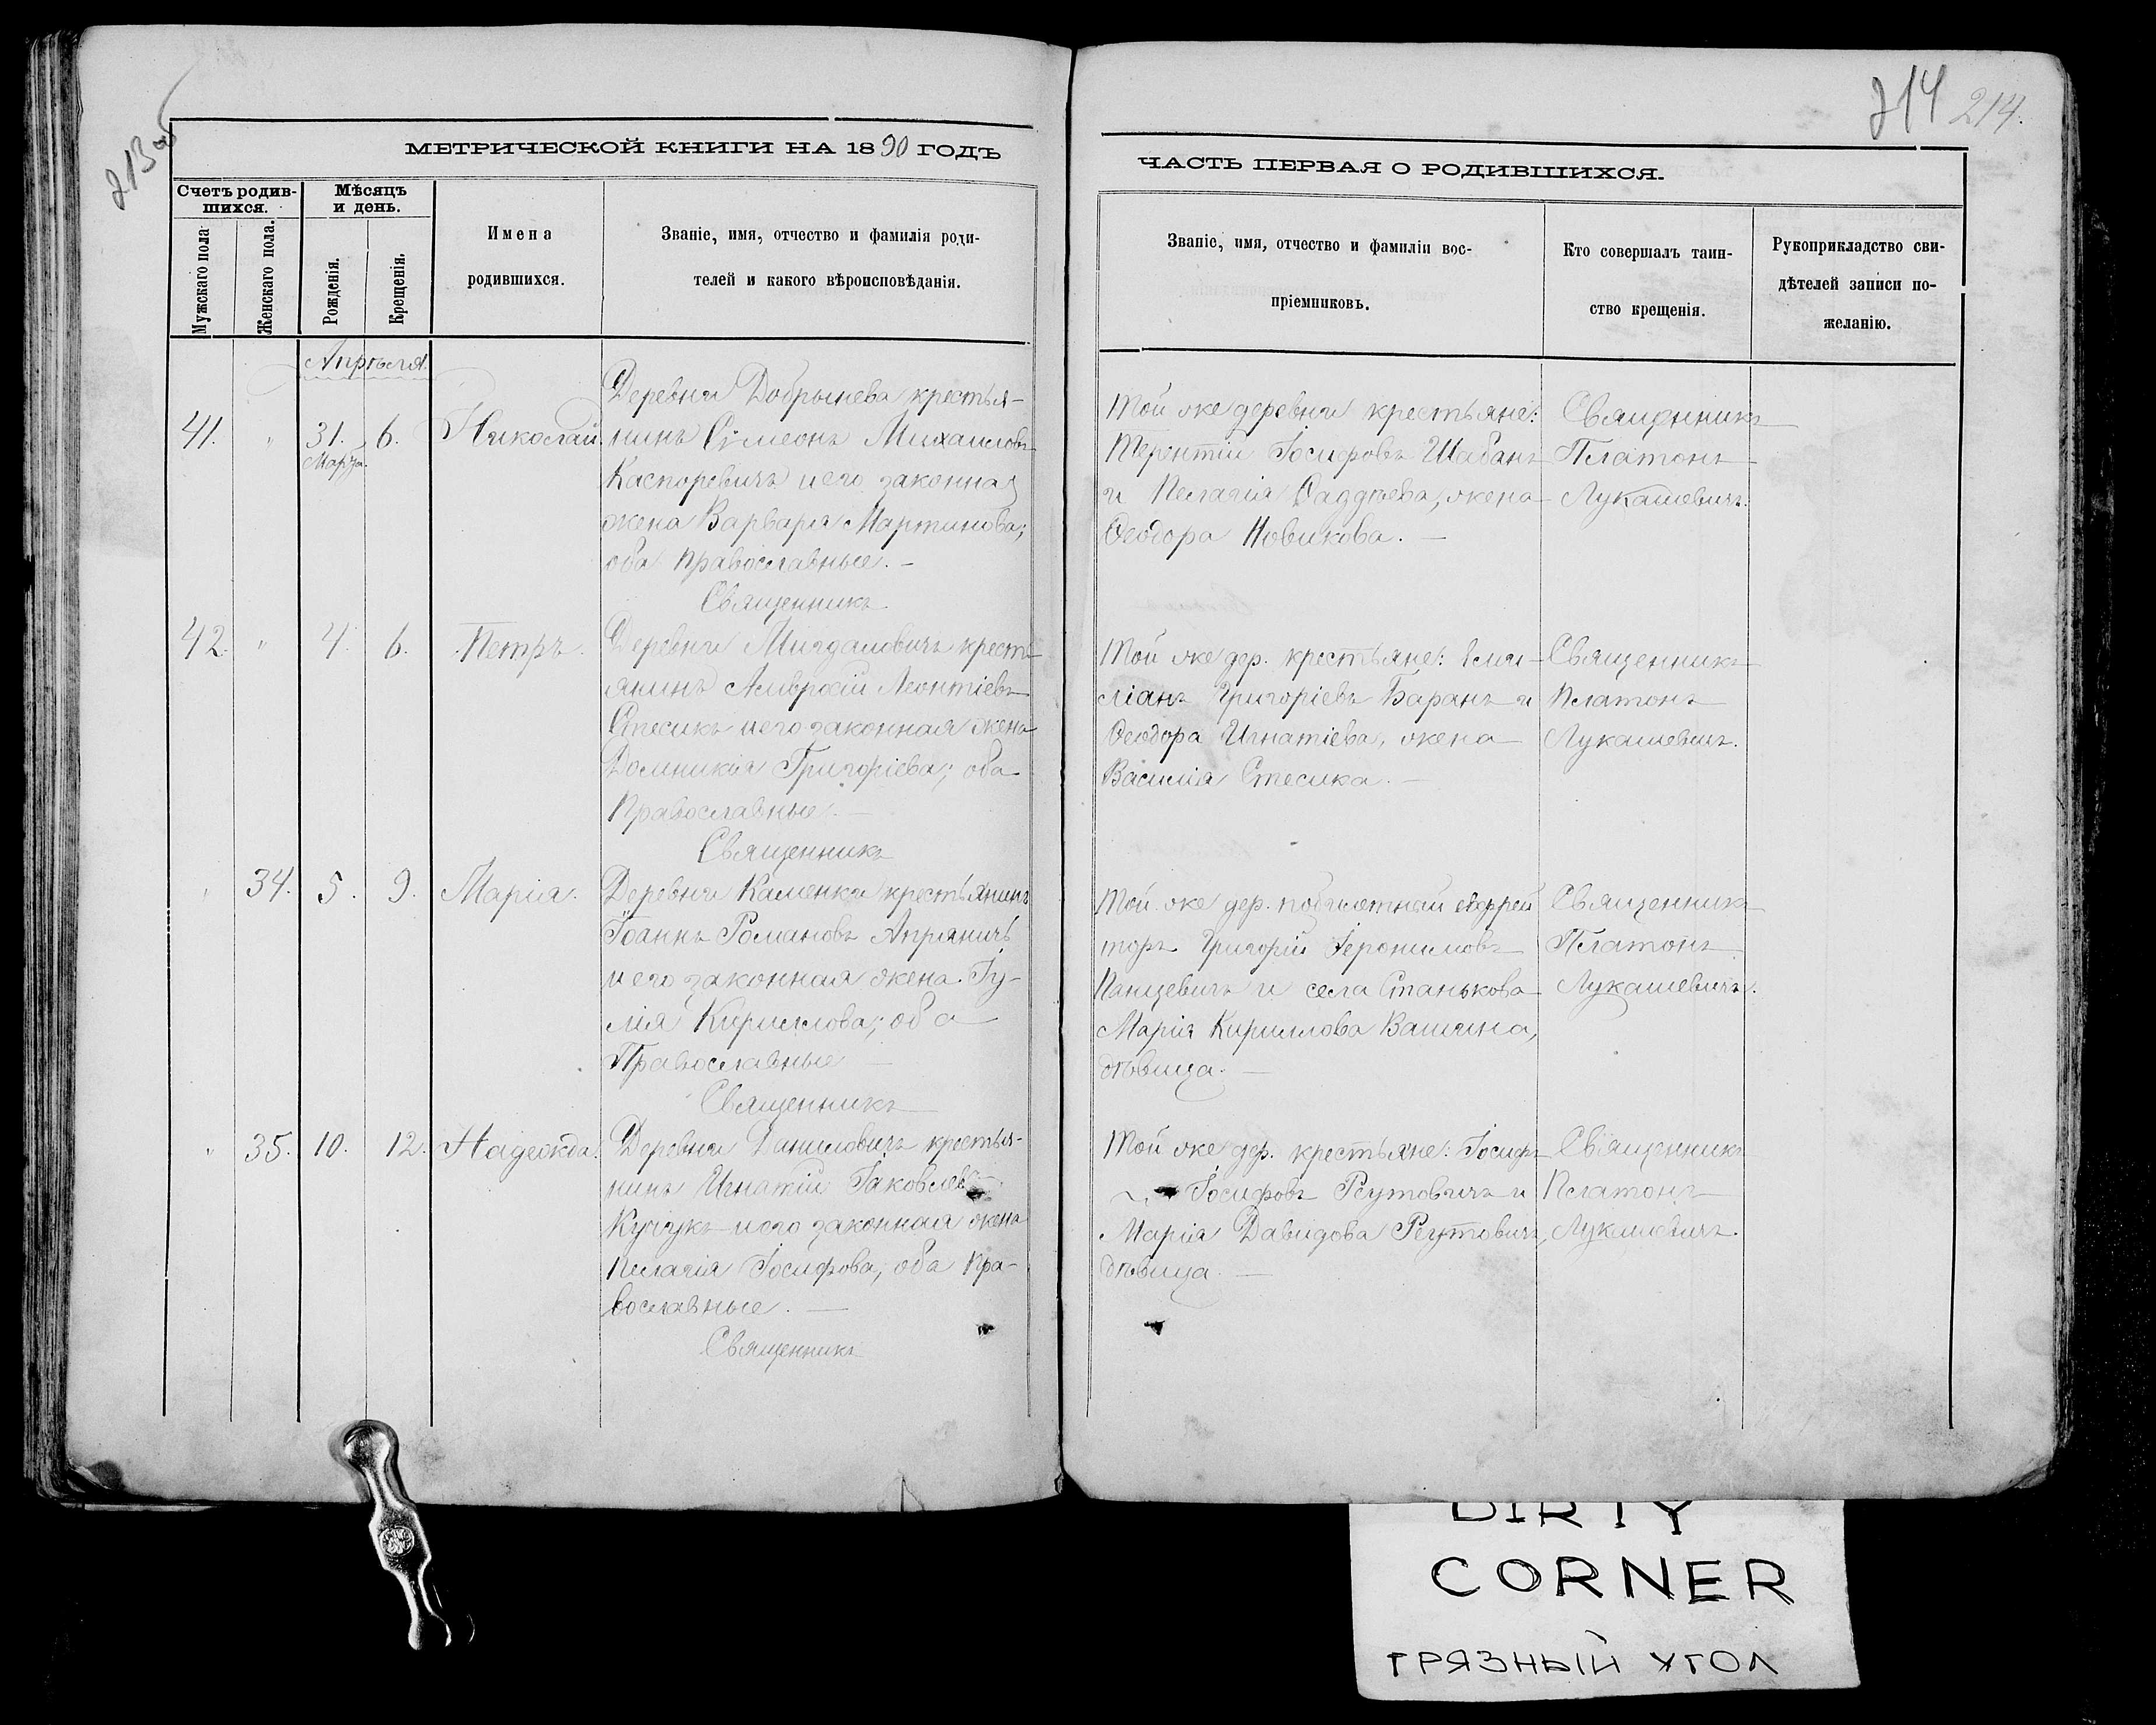 213 об
МЕТРИЧЕСКОЙ КНИГИ НА 1890 ГОДЪ
Счетъ родив-
шихся.
Мѣсяцъ
и день.
Мужскаго пола
Женскаго пола.
Рожденія.
Крещенія.
Имена
родившихся.
Званіе, имя, отчество и фамилія роди-
телей и какого вѣроисповѣданія.
Апрѣля
41. " 31. Марта. 6. Николай.
Деревни Добрынева крестья-
нинъ Сѵмеонъ Михаиловъ
Каспоревичъ и его законная
жена Варвара Мартинова;
оба православные. —
Священникъ
42. " 4. 6. Петръ.
Деревни Мигдаловичъ кресть-
янинъ Амвросій Леонтіевъ
Стесикъ и его законная жена
Домникія Григоріева; оба
Православные. —
Священникъ
" 34. 5. 9. Марія.
Деревни Каменки крестьянинъ
Іоаннъ Романовъ Апряничъ
и его законная жена Іу-
лія Кириллова; оба
Православные —
Священникъ
" 35. 10. 12. Надежда.
Деревни Даниловичъ крестья-
нинъ Игнатій Іаковлевъ
Кучукъ и его законная жена
Пелагія Іосифова; оба Пра-
вославные. —
Священникъ
214 214.
ЧАСТЬ ПЕРВАЯ О РОДИВШИХСЯ.
Званіе, имя, отчество и фамиліи вос-
пріемниковъ.
Кто совершалъ таин-
ство крещенія.
Рукоприкладство сви-
дѣтелей записи по-
желанію.
Той же деревни крестьяне:
Терентій Іосифовъ Шабанъ
и Пелагія Фаддѣева, жена
Ѳеодора Новикова. —
Священникъ
Платонъ
Лукашевичъ.
Той же дер. крестьяне: Еми-
ліанъ Григоріевъ Баранъ и
Ѳеодора Игнатіева, жена
Василія Стесика. —
Священникъ
Платонъ
Лукашевичъ.
Той же дер. побилетный ефрей
торъ Григорій Іеронимовъ
Панцевичъ и села Станькова
Марія Кириллова Вашина,
дѣвица. —
Священникъ
Платонъ
Лукашевичъ.
Той же дер. крестьяне: Іосифъ
Іосифовъ Реутовичъ и
Марія Давидова Реутовичъ,
дѣвица. —
Священникъ
Платонъ
Лукашевичъ.
DIRTY
CORNER
ГРЯЗНЫЙ УГОЛ